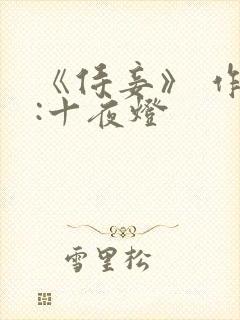 《侯妾》 作
:十夜燈
雪里松